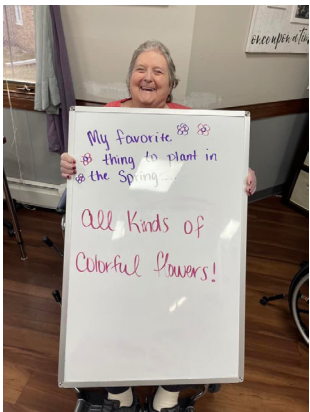 once upon a tim
My favorite
thing to plant in
the Spring...
all Kinds of
Colorful flowers!